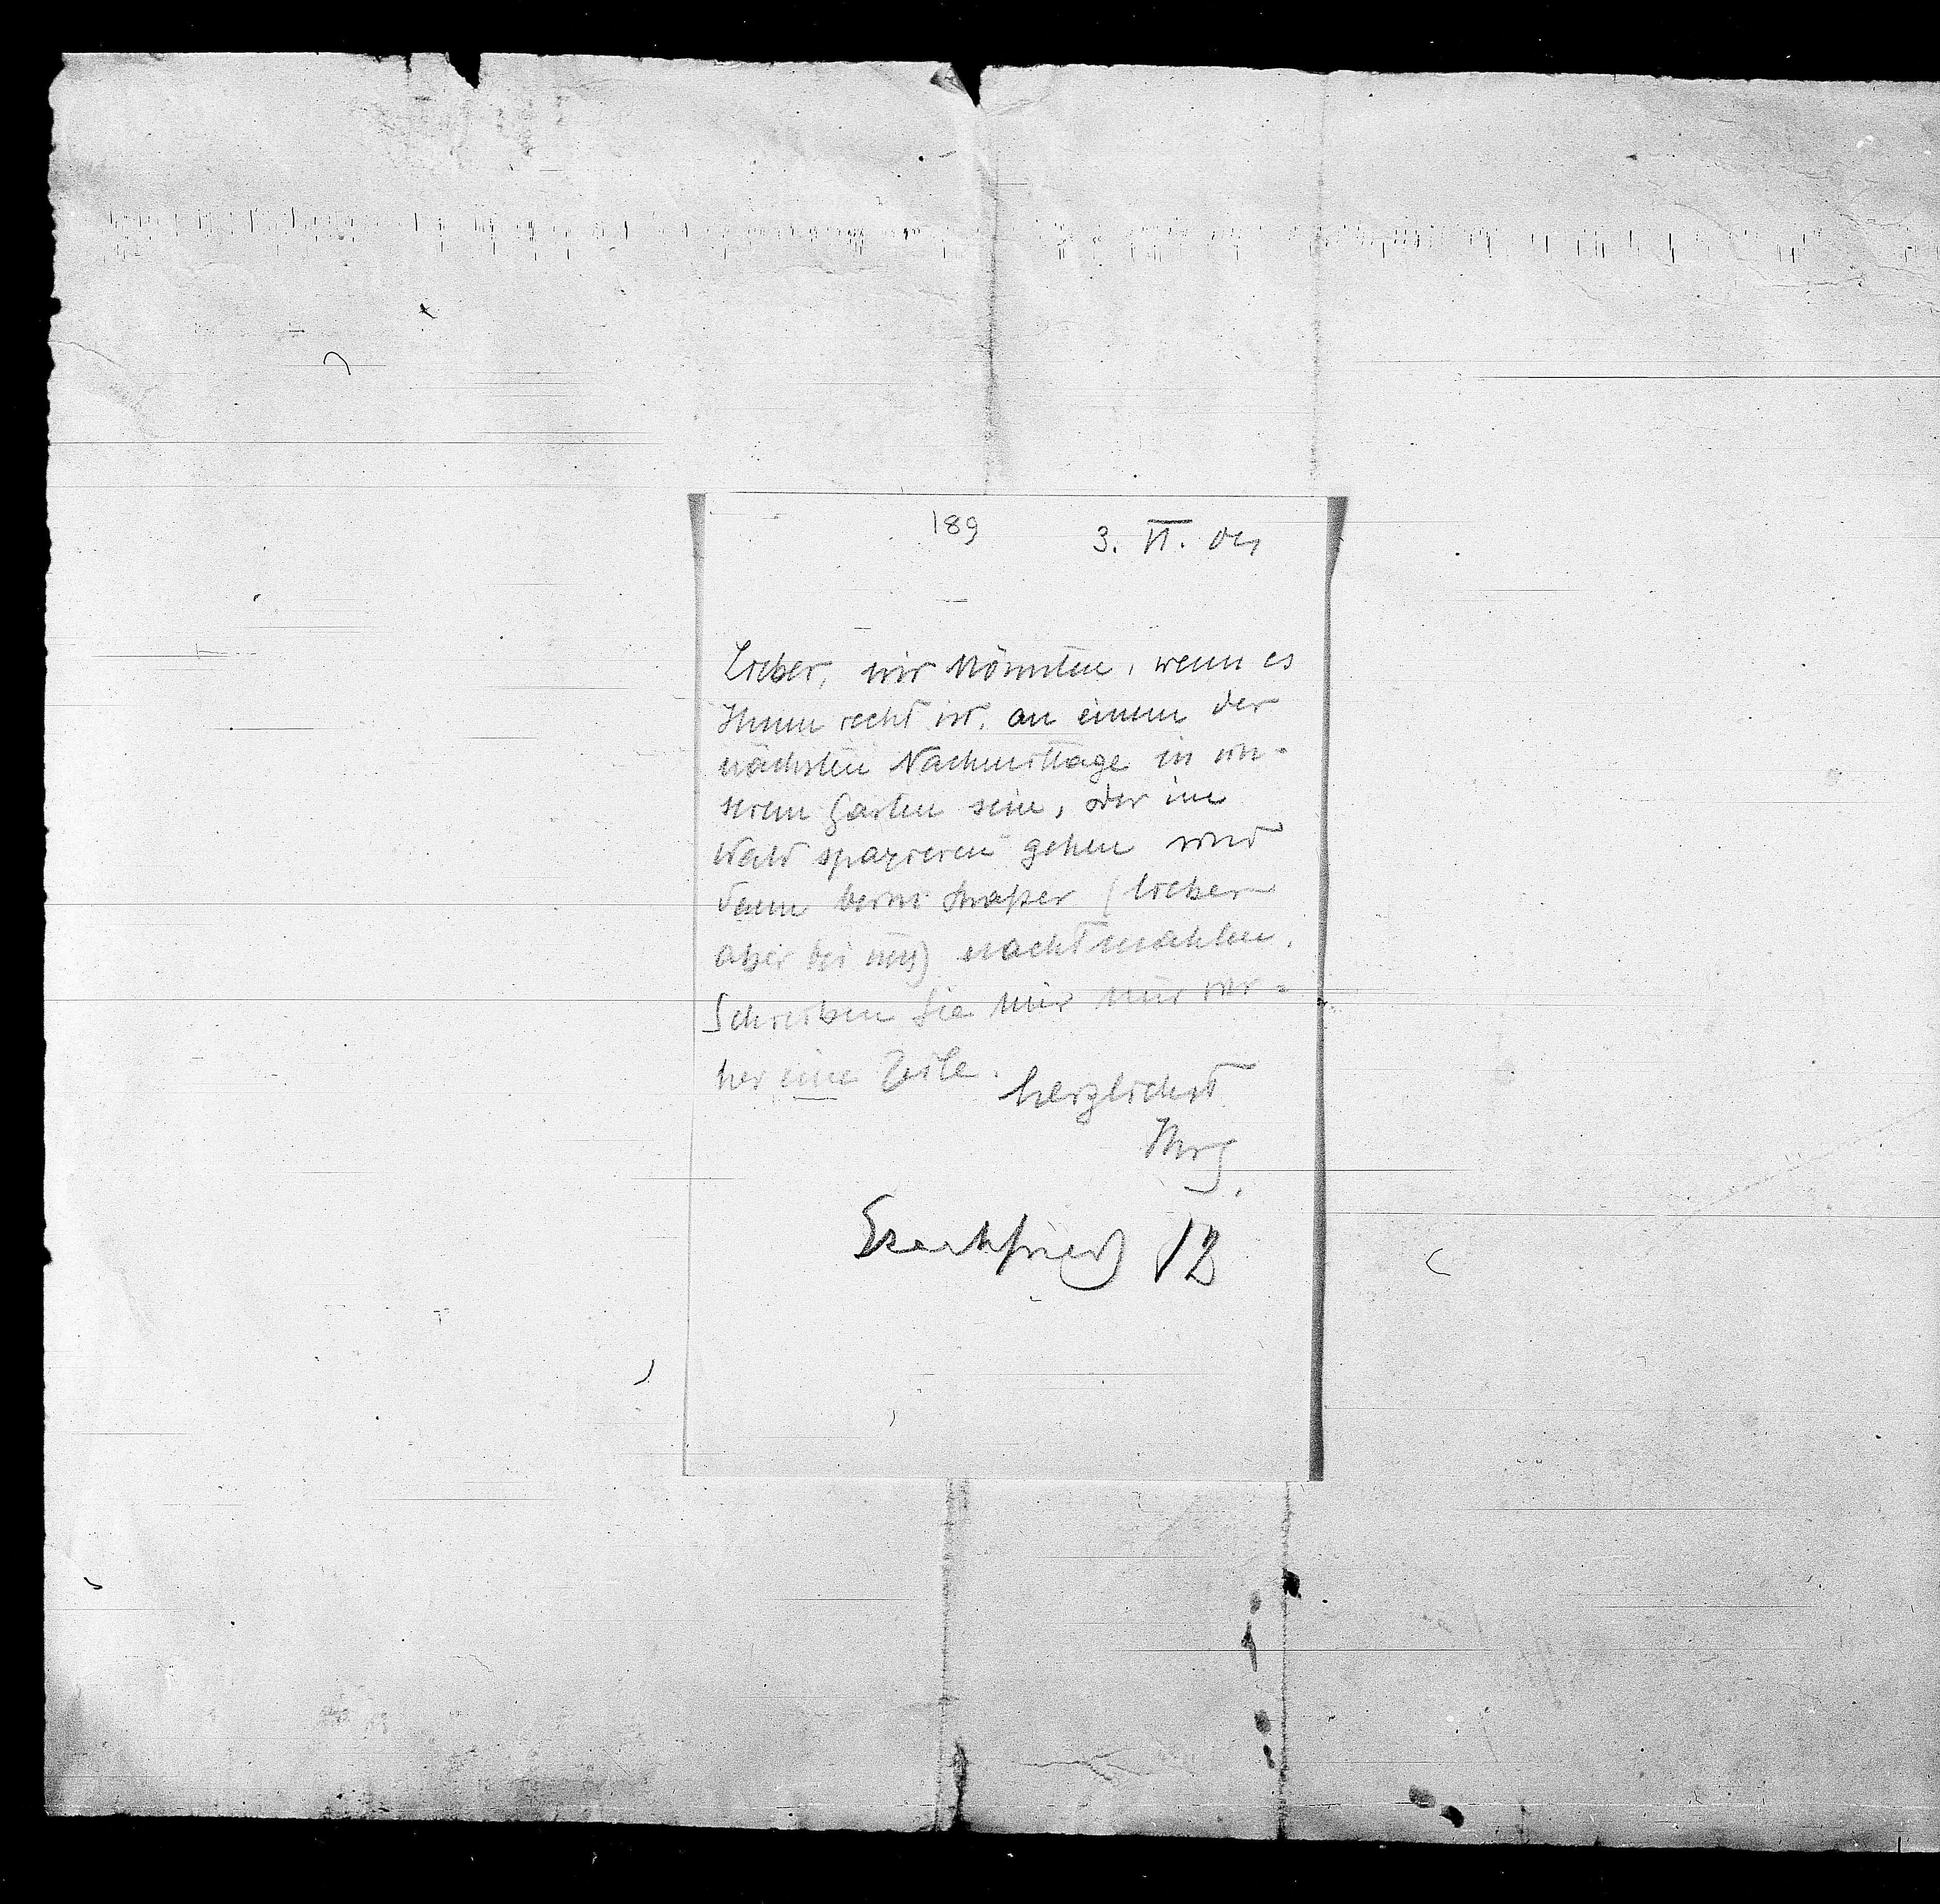 189
3. VI. 04
Lieber, wir könnten, wenn es
Ihnen recht ist, an einem der
nächsten Nachmittage in un-
serem Garten sein, oder im
Wald spazieren gehen und
dann beim (lieber
aber bei uns) nachtmahlen.
Schreiben Sie mir nur vor=
her eine Zeile.
herzlichst
Ihr S.
12